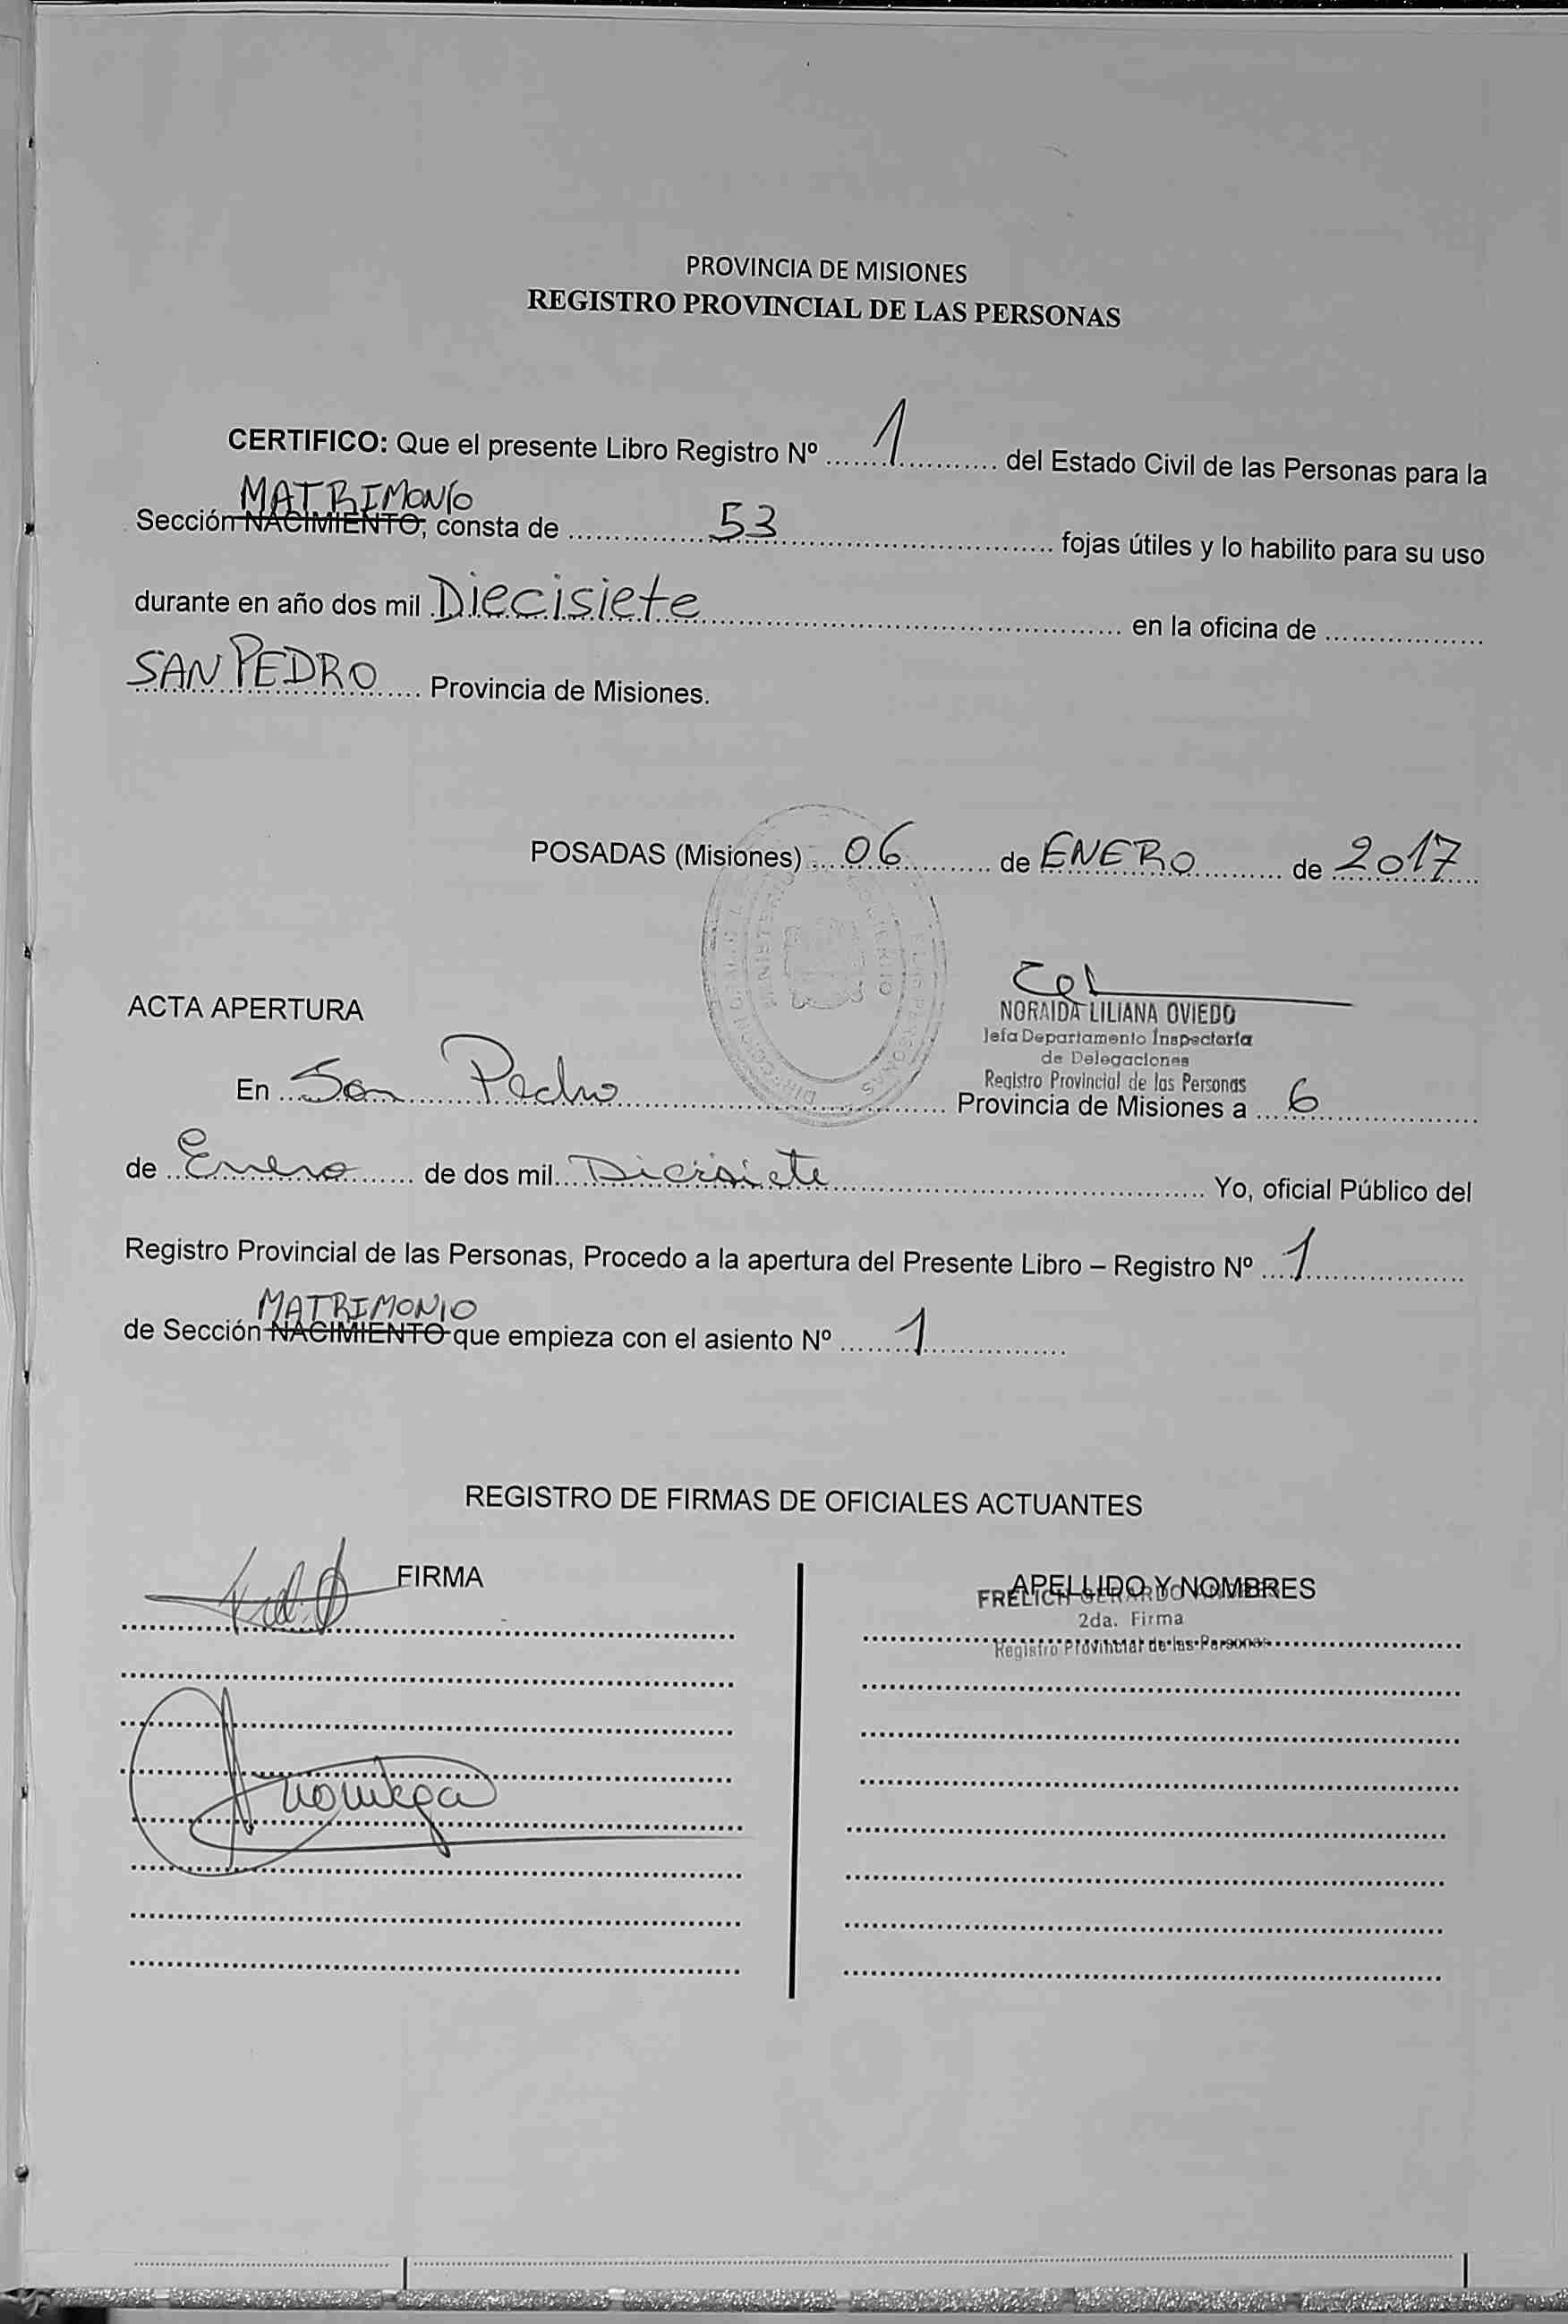 PROVINCIA DE MISIONES
REGISTRO PROVINCIAL DE LAS PERSONAS
CERTIFICO: Que el presente Libro Registro Nº 1 del Estado Civil de las Personas para la
MATRIMONIO
Sección NACIMIENTO, consta de 53 fojas útiles y lo habilito para su uso
durante en año dos mil Diecisiete en la oficina de
SAN PEDRO Provincia de Misiones.
POSADAS (Misiones) 06 de ENERO de 2017
NORAIDA LILIANA OVIEDO
Jefa Departamento Inspectoría
de Delegaciones
Registro Provincial de las Personas
ACTA APERTURA
En San Pedro Provincia de Misiones a 6
de Enero de dos mil Diecisiete Yo, oficial Público del
Registro Provincial de las Personas, Procedo a la apertura del Presente Libro – Registro Nº 1
MATRIMONIO
de Sección NACIMIENTO que empieza con el asiento Nº 1
REGISTRO DE FIRMAS DE OFICIALES ACTUANTES
FIRMA APELLIDO Y NOMBRES
FRELICH GERARDO
2da. Firma
Registro Provincial de las Personas